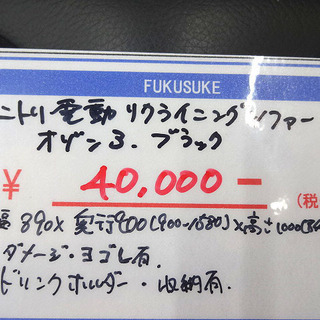 FUKUSUKE
ニトリ電動リクライニングソファー
オザン3.ブラック
¥ 40,000-
(税
幅890×奥行900(900-1580)×高さ1000
ダメージ・ヨゴレ有.
ドリンクホルダー・収納有.